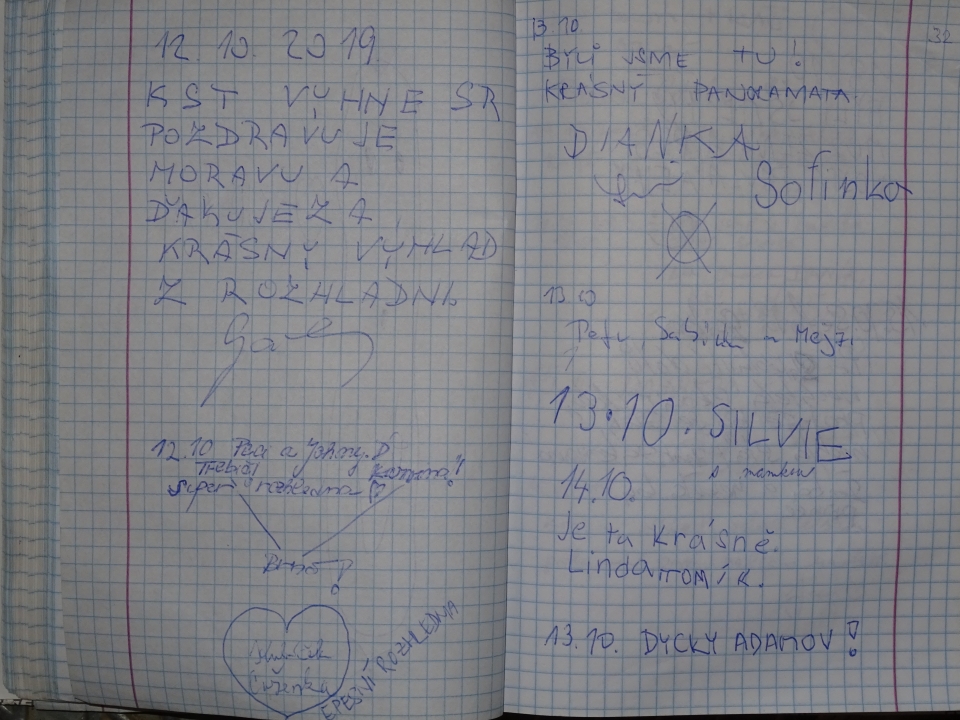 12. 10. 2019.
KST VYHNE SR
POZDRAVUJE
MORAVU A
ĎAKUJE ZA
KRÁSNY VÝHĽAD
Z ROZHLADNI.
12.10 a D
Třebíč
super rozhledna
Brno!
EPESNÍ ROZHLEDNA
32
13.10
BYLI JSME TU!
KRÁSNÝ PANORAMATA.
DIANKA
Sofinka
13.10
Peťu, a
13.10. SILVIE
14.10.
Je tu Krásně.
Linda TOMÍK.
13.10. DYCKY ADAMOV!